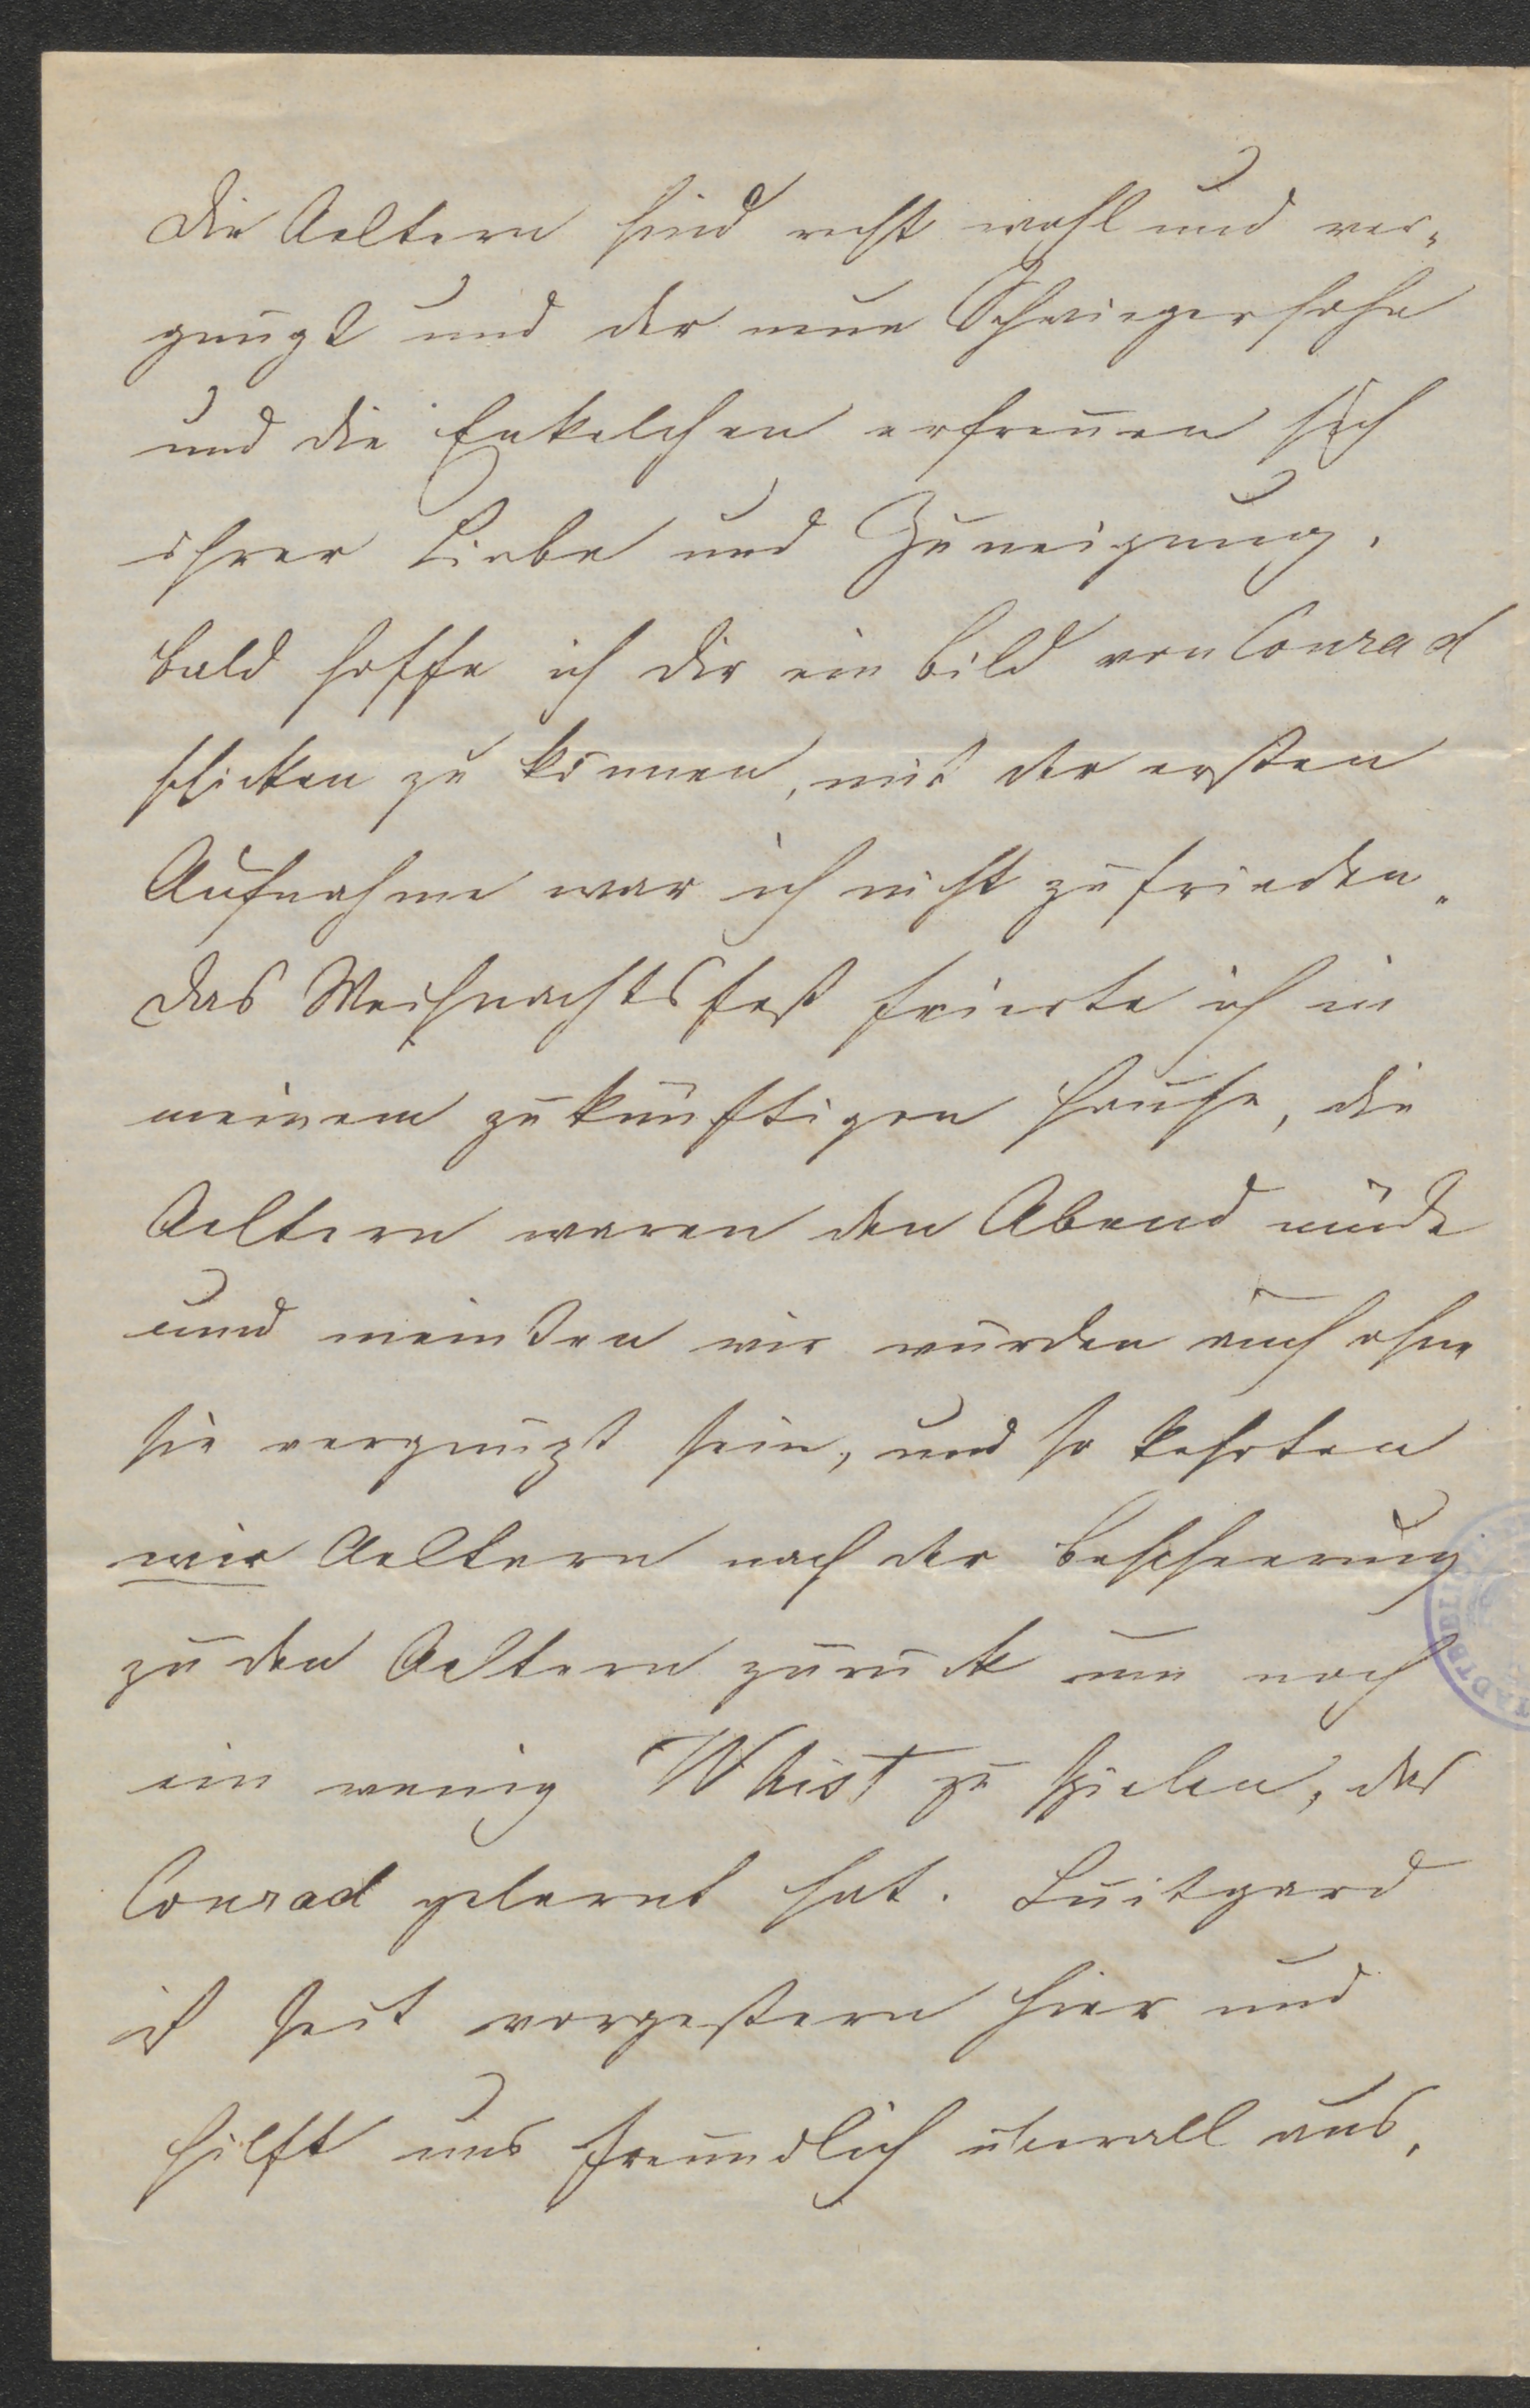 Die Aeltern sind recht wohl und ver-
gnügt und der neue Schwiegersohn
und die Enkelchen erfreuen sich
ihrer Liebe und Zuneigung.
Bald hoffe ich Dir ein Bild von Conrad
schicken zu können, mit der ersten
Aufnahme war ich nicht zufrieden.
Das Weihnachtsfest feierte ich in
meinem zukünftigen Hause, die
Aeltern waren den Abend müde
und meinten wir würden auch ohne
sie vergnügt sein, und so kehrten
wir Aeltern nach der Bescheerung
zu den Aeltern zurück um noch
ein wenig Whist zu spielen, das
Conrad gelernt hat. Luitgard
ist seit vorgestern hier und
hilft uns freundlich überall aus,